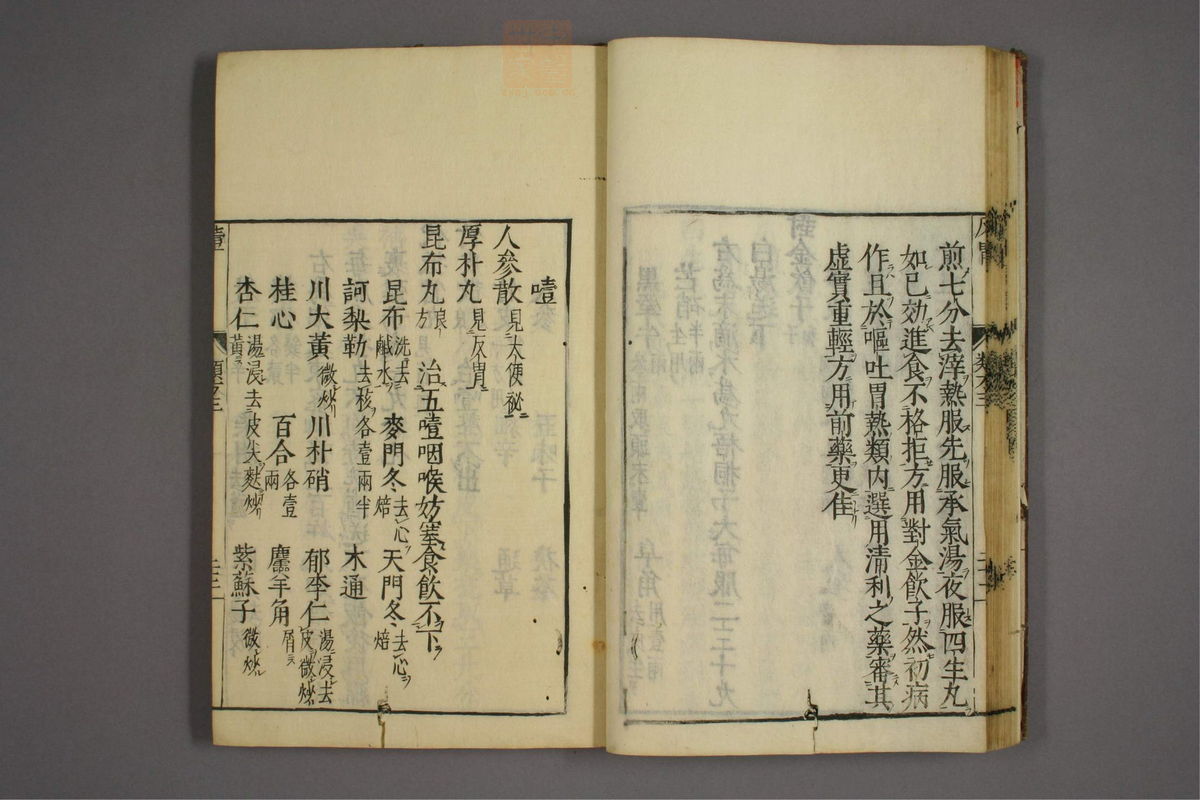 煎七分去滓熱服先服承氣湯夜服四生丸
如已効進食不格拒方用對金飲子然初病
作且於嘔吐胃熱類內選用清利之藥審其
虛實重輕方用前藥更佳
噎
人參散見大便祕
厚朴丸見反胃
昆布丸良方 治五噎咽喉妨塞食飲不下
昆布洗去鹹水 麥門冬去心焙 天門冬去心焙
訶梨勒去核各壹兩半 木通
川大黃微炒 川朴硝 郁李仁湯浸去皮微炒
桂心 百合各壹兩 麢羊角屑
杏仁湯浸去皮尖麩炒黃 紫蘇子微炒